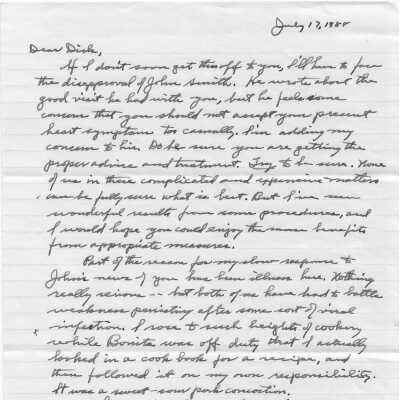 July 17, 1988
Dear Dick,
If I don't soon get this off to you, I'll have to face
the disapproval of John Smith. He wrote about the
good visit he had with you, but he feels some
concern that you should not accept your present
heart symptoms too casually. I'm adding my
concern to his. Do be sure you are getting the
proper advice and treatment. Try to be sure. None
of us in these complicated and expensive matters
can be fully sure what is best. But I've seen
wonderful results from some procedures, and
I would hope you could enjoy the same benefits
from appropiate measures.
Part of the reason for my slow response to
John's news of you has been illness here. Nothing
really serious -- but both of us have had to battle
weakness persisting after some sort of viral
infection. I rose to such heights of cookery
while Bonita was off duty that I actually
looked in a cook book for a recipe, and
then followed it on my own responsibility.
It was a sweet-sour pork concoction.